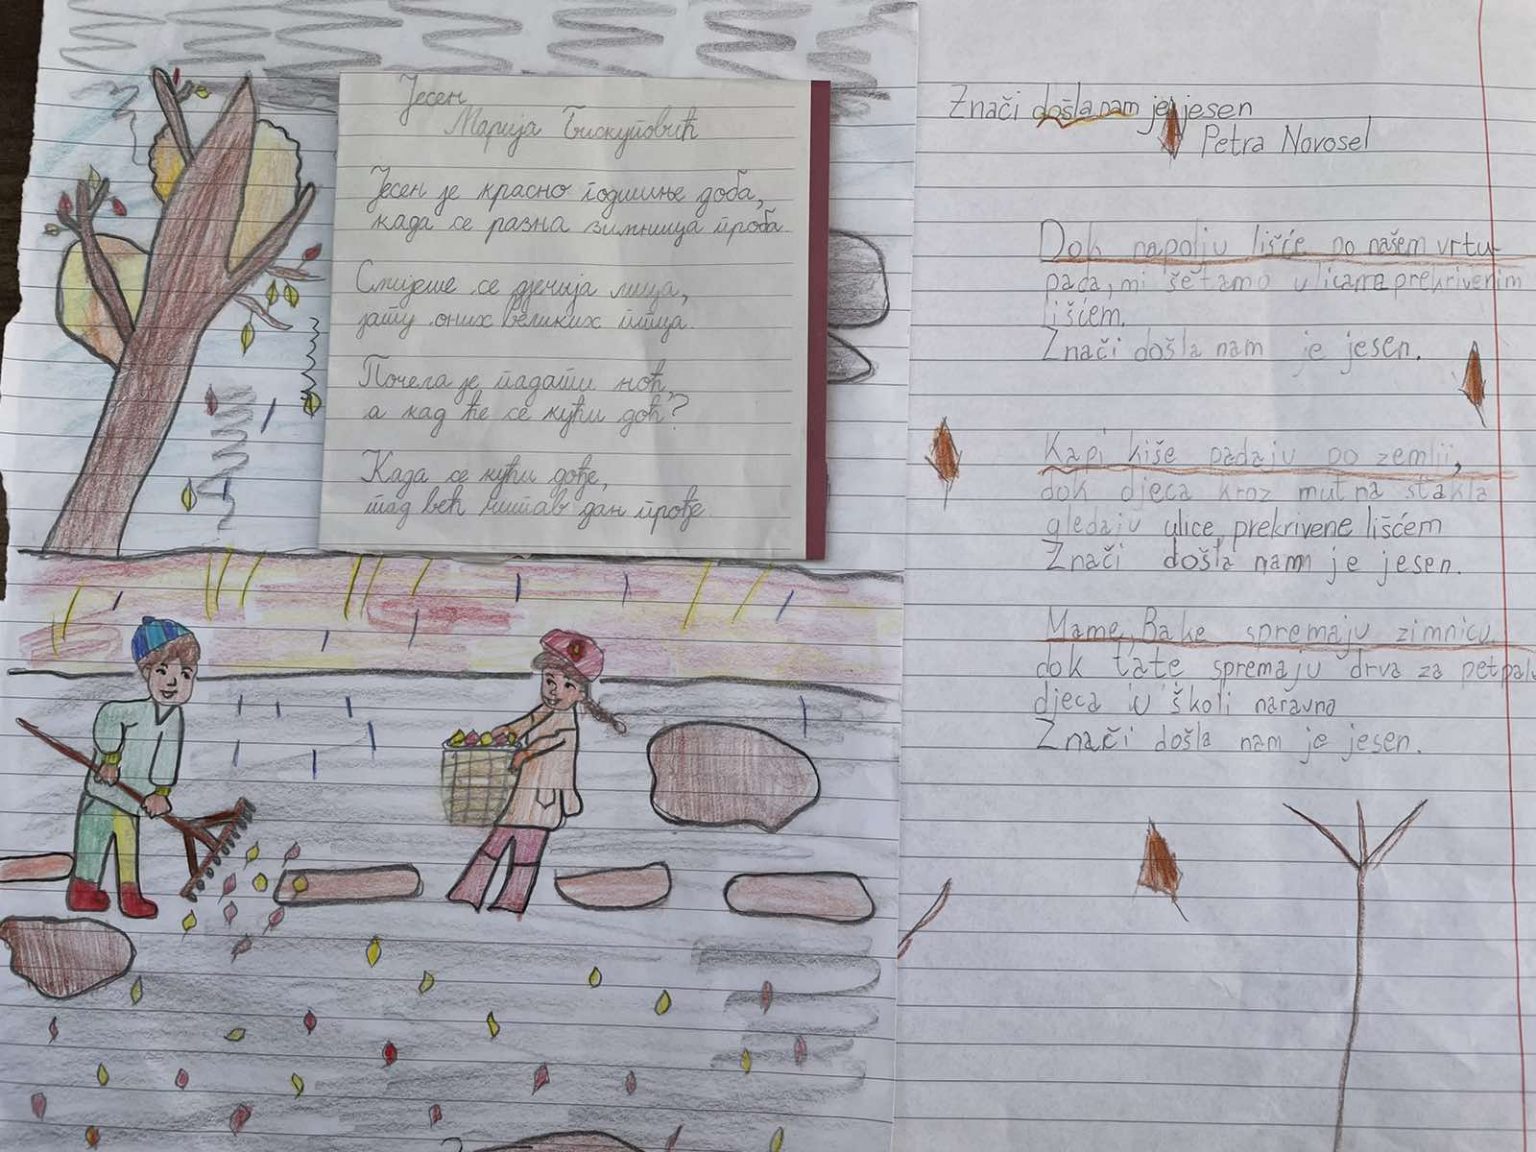 Јесен
Марија Бискуповић
Јесен је красно годишње доба,
када се разна зимница проба.
Смијеше се дјечија лица,
јашу оних великих птица.
Почела је падати ноћ
а кад ће се кући доћ?
Каза се кући дође,
тад већ читав дан прође.
Znači došla nam je jesen
Petra Novosel
Dok napolju lišće po našem vrtu
pada, mi šetamo ulicama prekrivenim
lišćem.
Znači došla nam je jesen.
Kapi kiše padaju po zemlji,
dok djeca kroz mutna stakla
gledaju ulice prekrivene lišćem
Znači došla nam je jesen.
Mame, Bake spremaju zimnicu
dok tate spremaju drva za
djeca u školi naravno
Znači došla nam je jesen.